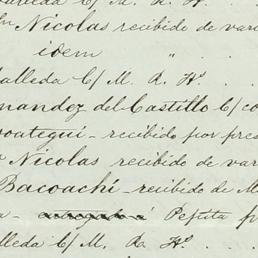 Nicolas recibido de vari
idem " . .
alleda C/ M. R. Hº . .
nandez del Castillo C/ co
oategui - recibido por pres
Nicolas recibido de var
Bacoachi - recibido de M
a - ~~entregado á~~ Pepita p
lleda C/ M. R. Hº . . .